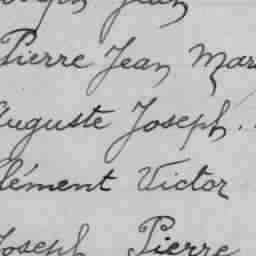 Joseph Jean
Pierre Jean Mar
Auguste Joseph.
Clément Victor
Joseph Pierre